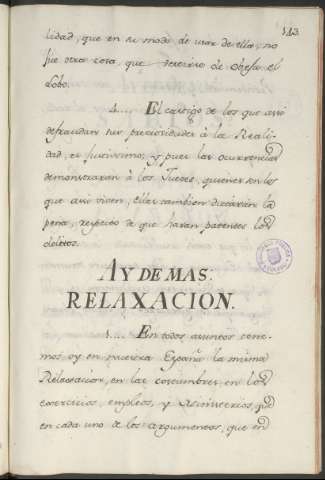 113
lidad, que en su modo de usar de ellas, no
fue otra cosa que
Lobo.
4.... El castigo de los que assi
defraudan sus preciosidades à la Reali-
dad, es justissimo, y pues las ocurrencias
demonstraràn à los Jueces, quienes son los
que assi viven, ellas tambien dictaràn la
pena, respecto de que haràn patentes los
delitos.
AY DE MAS.
RELAXACION.
1.... En todos asuntos tene-
mos oy en nuestra España la misma
Relaxacion, en las costumbres, en los
exercicios, empleos, y Ministerios, pr
en cada uno de los argumentos, que en